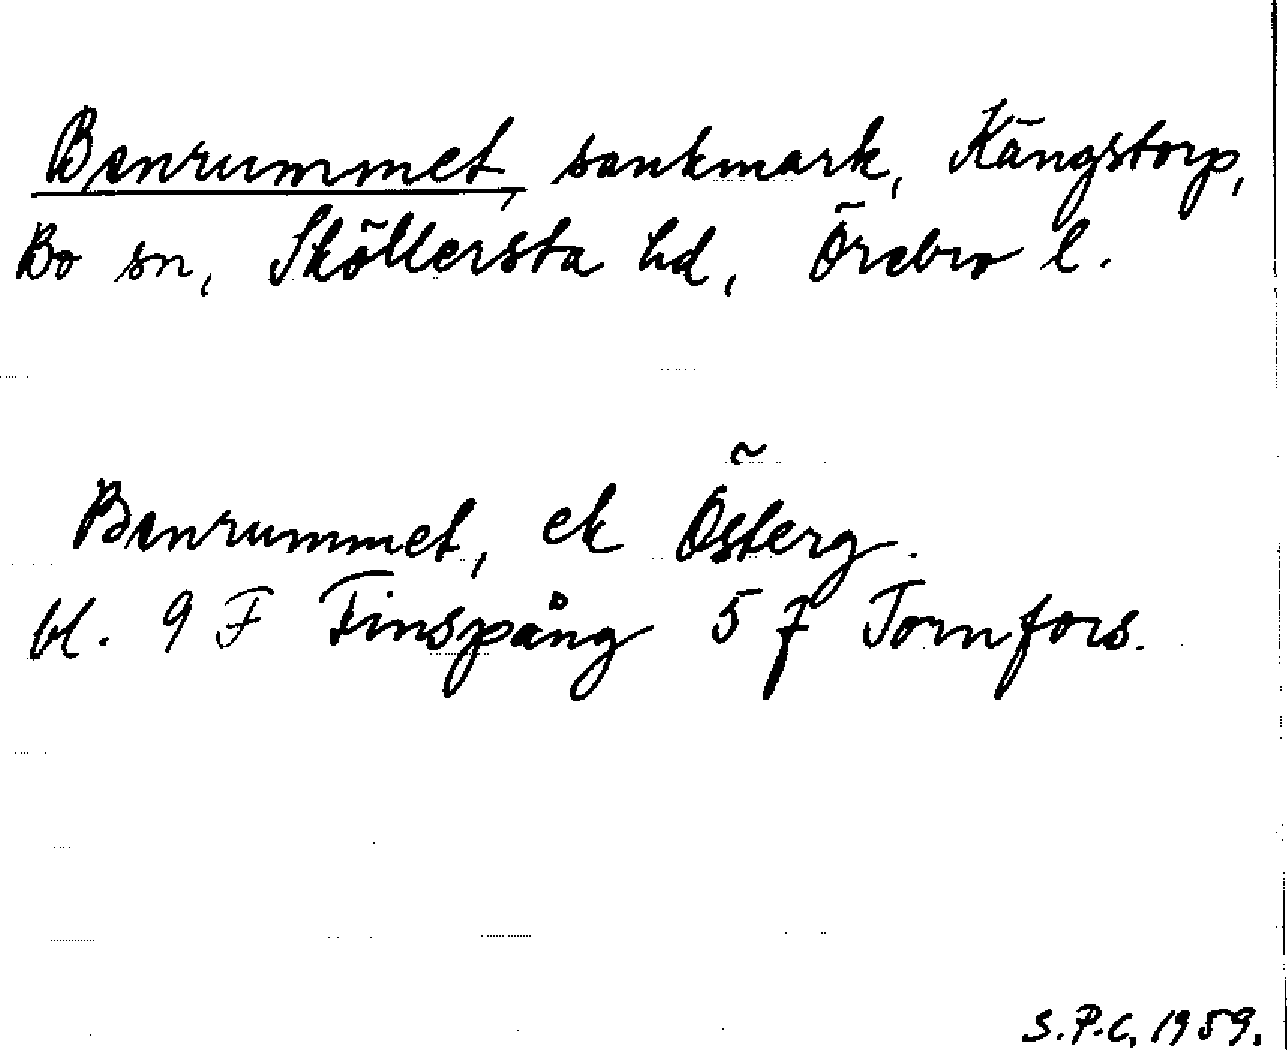 Benrummet, sankmark, Kängstorp,
Bo sn, Sköllersta hd, Örebro l.
Benrummet, ek Österg.
bl. 9 F Finspång 5 f Tornfors.
S.P.C. 1959.